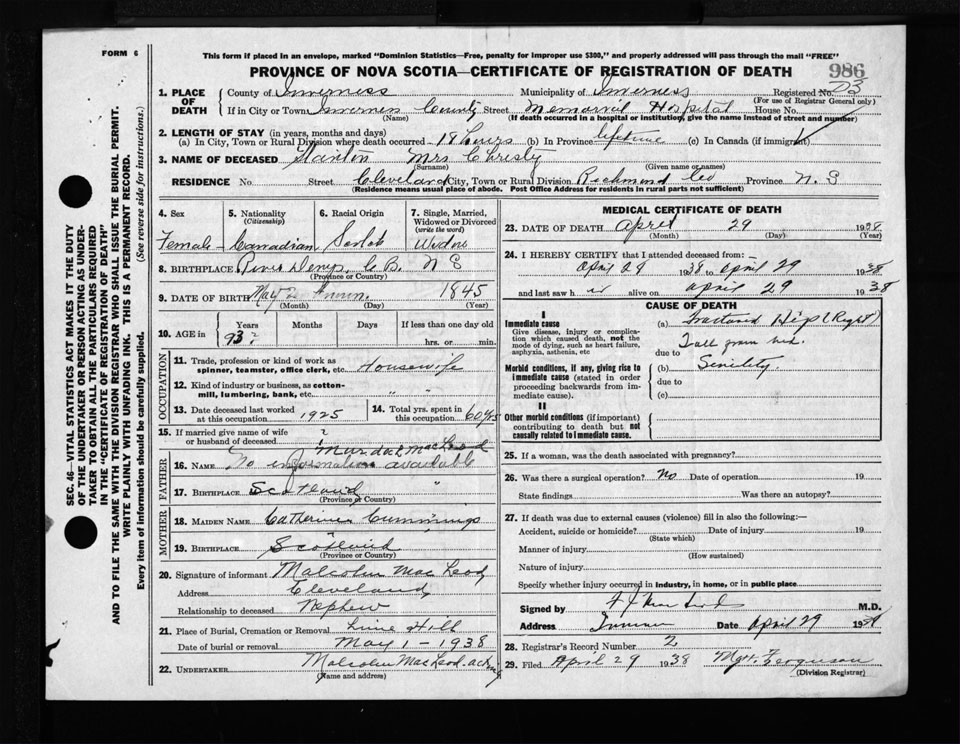 FORM 6
This form if placed in an envelope, marked "Dominion Statistics—Free, penalty for improper use $300," and properly addressed will pass through the mail "FREE"
PROVINCE OF NOVA SCOTIA—CERTIFICATE OF REGISTRATION OF DEATH
986
1. PLACE OF DEATH
County of Inverness Municipality of Inverness Registered No. 23
(For use of Registrar General only)
If in City or Town Inverness County Street Memorial Hospital House No.
(Name) (If death occurred in a hospital or institution, give the name instead of street and number)
2. LENGTH OF STAY (in years, months and days)
(a) In City, Town or Rural Division where death occurred 18 hours (b) In Province lifetime (c) In Canada (if immigrant)
3. NAME OF DECEASED Mrs Christy
(Surname) (Given name or names)
RESIDENCE No Street Cleveland City, Town or Rural Division Richmond Co Province N. S
(Residence means usual place of abode. Post Office Address for residents in rural parts not sufficient)
4. Sex
Female
5. Nationality
(Citizenship)
Canadian
6. Racial Origin
Scotch
7. Single, Married, Widowed or Divorced
(write the word)
Widow
8. BIRTHPLACE River Denys, C B. N S
(Province or Country)
9. DATE OF BIRTH 1845
(Month) (Day) (Year)
10. AGE in
Years Months Days If less than one day
93 hrs. or min.
OCCUPATION
11. Trade, profession or kind of work as spinner, teamster, office clerk, etc. Housewife
12. Kind of industry or business, as cotton-mill, lumbering, bank, etc. "
13. Date deceased last worked at this occupation 1925
14. Total yrs. spent in this occupation 60 yrs
15. If married give name of wife or husband of deceased ?
Murdoch MacLeod
FATHER
16. NAME No information available
17. BIRTHPLACE Scotland "
(Province or Country)
MOTHER
18. MAIDEN NAME Catherine Cummings
19. BIRTHPLACE Scotland
(Province or Country)
20. Signature of informant Malcolm MacLeod
Address Cleveland
Relationship to deceased Nephew
21. Place of Burial, Cremation or Removal Lime Hill
Date of burial or removal May 1 - 1938
22. UNDERTAKER Malcolm MacLeod acting
(Name and address)
MEDICAL CERTIFICATE OF DEATH
23. DATE OF DEATH April 29 1938
(Month) (Day) (Year)
24. I HEREBY CERTIFY that I attended deceased from:—
April 28 1938 to April 29 1938
and last saw her alive on April 29 1938
CAUSE OF DEATH
I
Immediate cause
Give disease, injury or complication which caused death, not the mode of dying, such as heart failure, asphyxia, asthenia, etc
(a) Fractured Hip (Right)
Fall from bed.
due to
Morbid conditions, if any, giving rise to immediate cause (stated in order proceeding backwards from immediate cause).
(b) Senility.
due to
(c)
II
Other morbid conditions (if important) contributing to death but not causally related to immediate cause.
25. If a woman, was the death associated with pregnancy?
26. Was there a surgical operation? No Date of operation 19
State findings Was there an autopsy?
27. If death was due to external causes (violence) fill in also the following:—
Accident, suicide or homicide? Date of injury 19
(State which)
Manner of injury
(How sustained)
Nature of injury
Specify whether injury occurred in industry, in home, or in public place
Signed by M.D.
Address Date April 29 1938
28. Registrar's Record Number 2
29. Filed April 29 1938 Ferguson
(Division Registrar)
SEC. 46—VITAL STATISTICS ACT MAKES IT THE DUTY OF THE UNDERTAKER OR PERSON ACTING AS UNDERTAKER TO OBTAIN ALL THE PARTICULARS REQUIRED IN THE "CERTIFICATE OF REGISTRATION OF DEATH"
AND TO FILE THE SAME WITH THE DIVISION REGISTRAR WHO SHALL ISSUE THE BURIAL PERMIT.
WRITE PLAINLY WITH UNFADING INK. THIS IS A PERMANENT RECORD.
Every item of information should be carefully supplied. (See reverse side for instructions.)